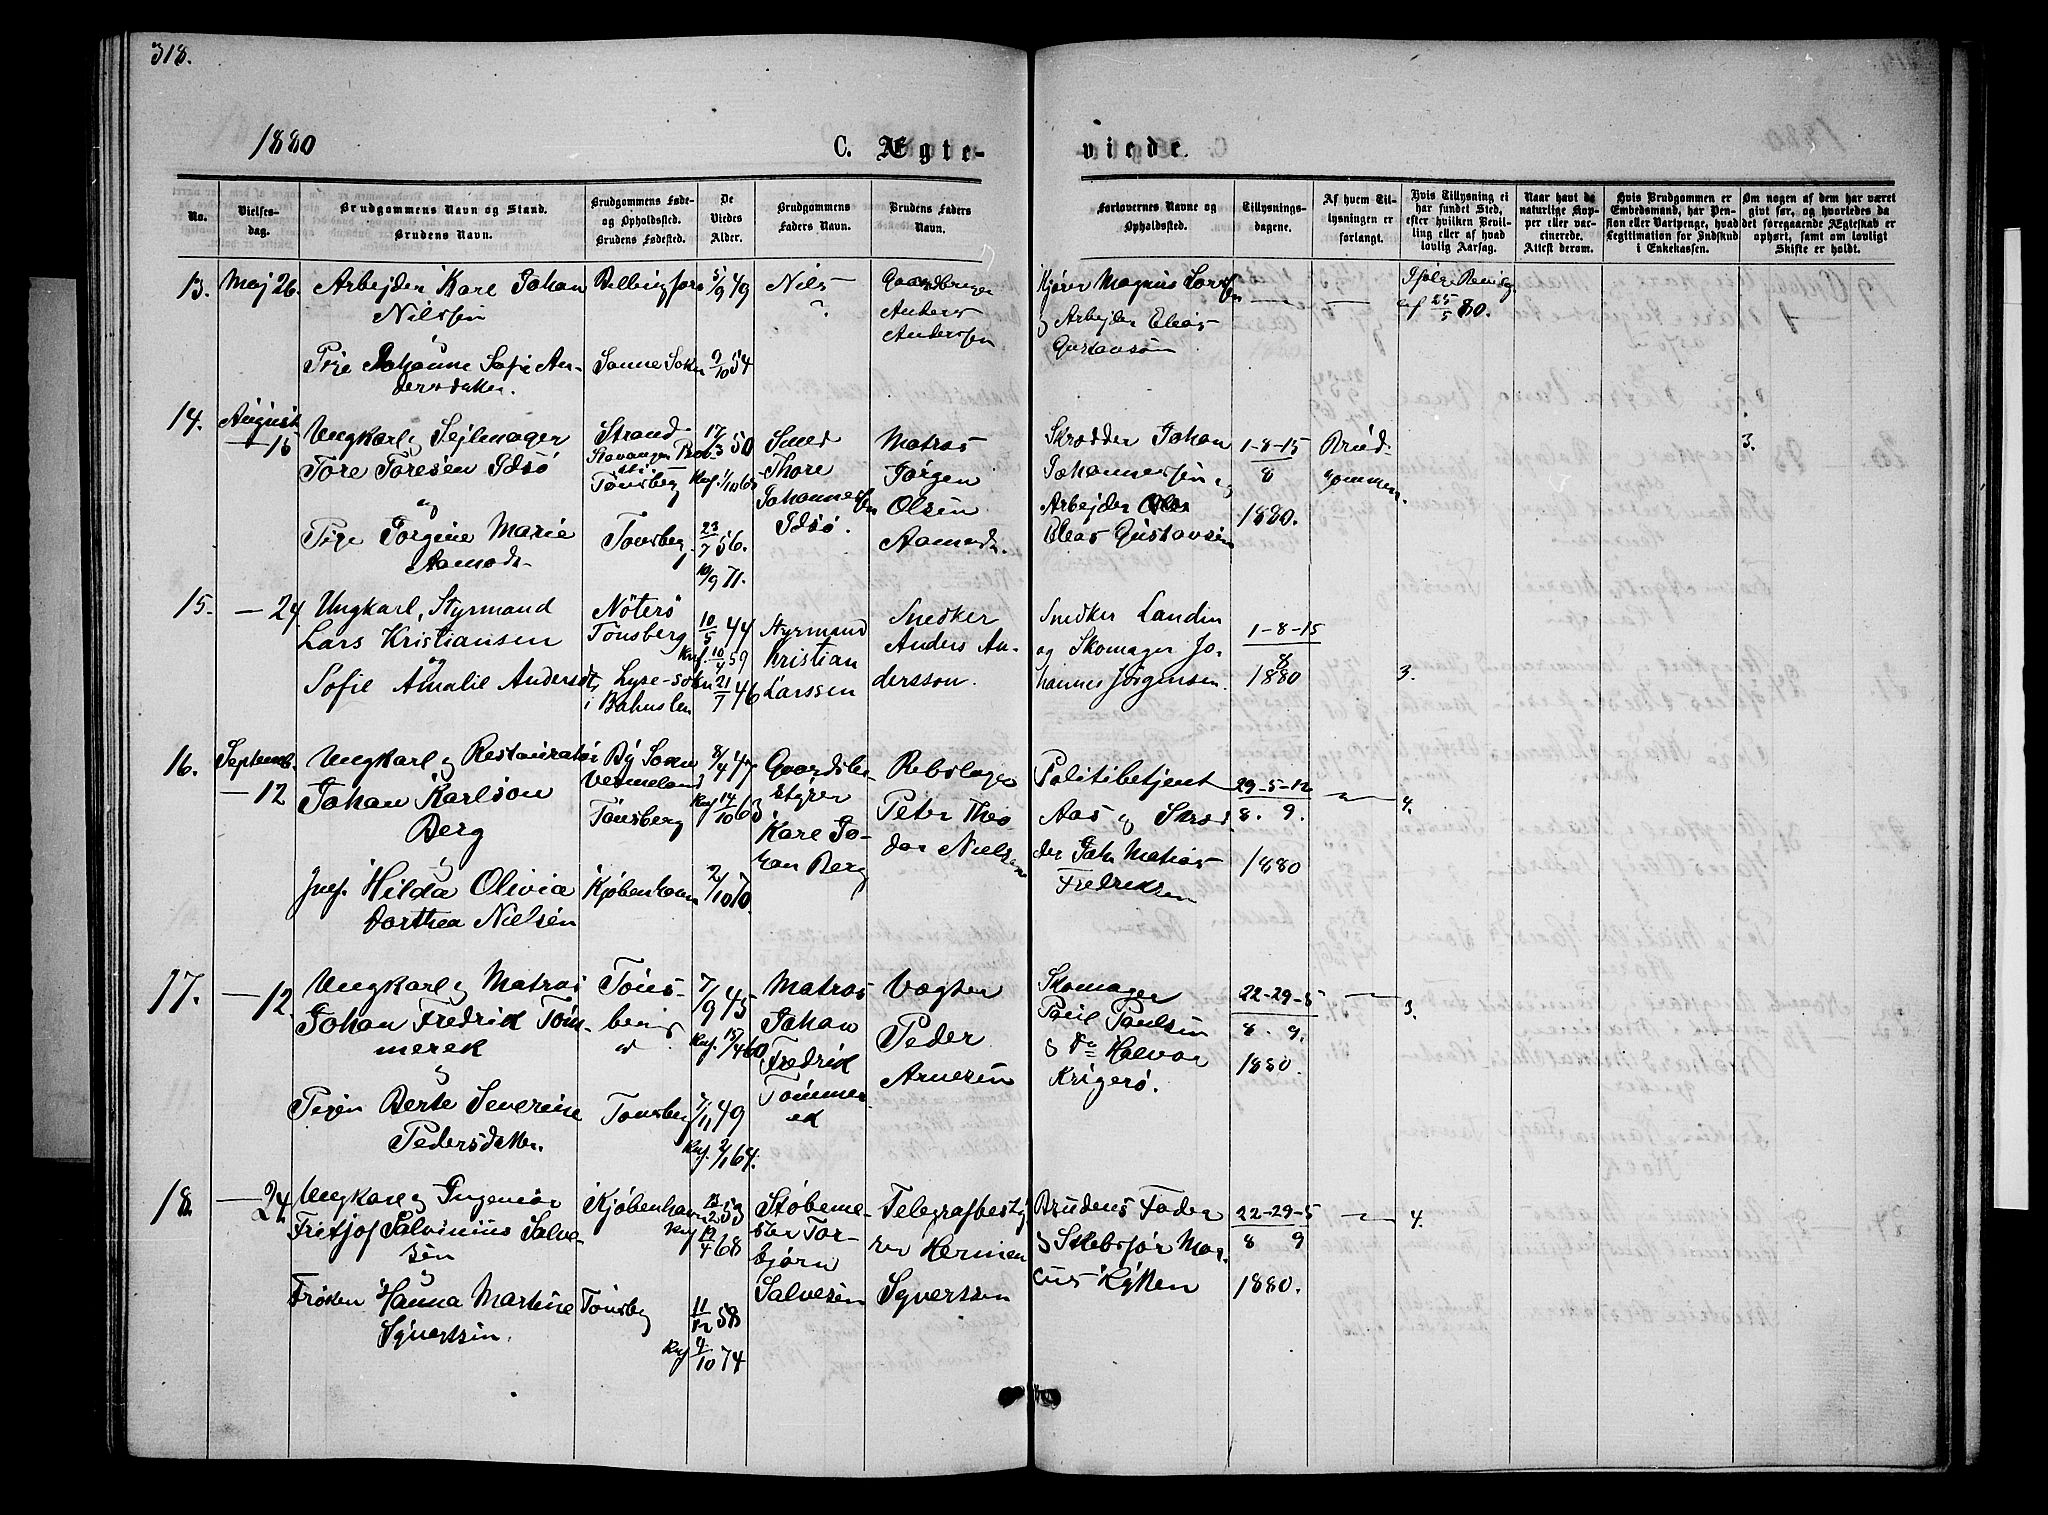 318.
1880
C. Ægte-
viede.
No.
Vielses-
dag.
Brudgommens Navn og Stand.
Brudens Navn.
Brudgommens Føde-
og Opholdssted.
Brudens Fødested.
De
Viedes
Alder.
Brudgommens
Faders Navn.
Brudens Faders
Navn.
Forlovernes Navne og
Opholdssted.
Tillysnings-
dagene.
Af hvem Til-
lysningen er
forlangt.
Hvis Tillysning ei
har fundet Sted,
efter hvilken Bevil-
ling eller af hvad
lovlig Aarsag.
Naar havt de
naturlige Kop-
per eller vac-
cinerede.
Attest derom.
Hvis Brudgommen er
Embedsmand, har Pen-
sion eller Vartpenge, hvad
Legitimation for Indskud
i Enkekassen.
Om nogen af dem har været
givt før, og hvorledes da
det foregaaende Ægteskab er
ophørt, samt om lovligt
Skifte er holdt.
13.
Maj 26.
Arbejder Karl Johan
Nilssen
og
Pige Johanne Sofie An-
dersdatter.
Sanne Soken
5/9 49
9/10 54
Nils
?
Gaardbruger
Anders
Anderssen
Kjører Magnus Lars-
sen
& Arbejder Elias
Gustavsøn
af 25/5 80.
14.
August
— 15
Ungkarl og Sejlmager
Tore Toresen Idsø
og
Pige Jorgine Marie
Aamodt
Strand
Stavanger
Tönsberg
Tönsberg.
17/3 50
Knf. 1/10 65
23/7 56.
10/9 71.
Smed
Thore
Johannes-
sen
Idsø.
Matros
Jørgen
Olsen
Aamodt.
Skrædder Johan
Johannessen og
Arbejder
Elias Gustavsen
1-8-15
8
1880.
Brud-
gommen.
3.
15.
— 24
Ungkarl, Styrmand
Lars Kristiansen
og
Sofie Amalie Andersdt.
Nöterö
Tönsberg
Lyse-sokn
i Bahuslen
10/5 44
Knf. 10/4 59
21/7 46
Styrmand
Kristian
Larssen
Snedker
Anders An-
dersson.
Snedker Landin
og Skomager Jo-
hannes Jörgensen.
1-8-15
8
1880
3.
16.
Septemb.
— 12
Ungkarl og Restauratör
Johan Karlson
Berg
og
Jnf. Hilda Olivia
Dorthea Nielsen
By Soken
Vermeland
Tönsberg
Kjøbenhavn
8/4 47
Knf. 14/10 63
Gaardsbe-
styrer
Karl Jo-
han Berg
Rebslager
Peter Theo
dor Nielsen
Politibetjent
Aas og Skræd
der Joh. Matias
Fredriksen
29-5-12
8. 9.
1880
4.
17.
— 12.
Ungkarl og Matros
Johan Fredrik Töm-
merek
og
Pigen Berte Severine
Pedersdatter.
Töns-
berg
Tönsberg
7/9 45
Knf. 15/4 60
7/11 49
Knf. 2/1 64.
Matros
Johan
Fredrik
Tömmer
ek
Vægter
Peder
Arnesen
Skomager
Paul Paulsen
& do Halvor
Krigerö.
22-29-5
8. 9.
1880.
3.
18.
— 24
Ungkarl og Ingeniör
Fritjof Salvinius Salve-
sen
og
Frøken Hanna Martine
Syvertsen.
Kjøbenhavn
Tönsberg
13/2 53
Knf 19/4 68
11/12 58
Knf 4/10 74
Støbeme-
ster Tor-
bjørn
Salvesen
Telegrafbesty
rer Herman
Syvertsen
Brudens Fader
& Skibsfør Mar-
cus Lytken
22-29-5
8 9
1880.
4.